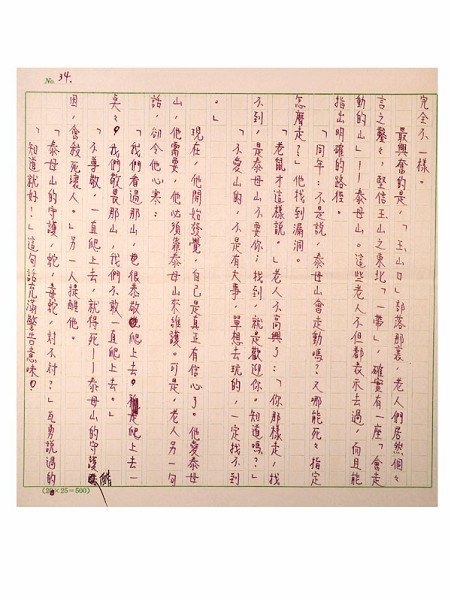 No. 34.
完全不一樣。
最興奮的是，「玉山口」部落那裏，老人們居然個々
言之鑿々，堅信玉山之東北「一帶」，確實有一座「會走
動的山」——泰母山。這些老人不但都表示去過，而且能
指出明確的路徑。
「同年：不是說，泰母山會走動嗎？又哪能死々指定
怎麼走？」他找到漏洞。
「老鼠才這樣說。」老人不高興了：「你那樣走，找
不到，是泰母山不要你；找到，就是歡迎你。知道嗎？」
「不愛山的，不是有大事，單想去玩的，一定找不到
。」
現在，他開始發覺，自己是真正有信心了。他愛泰母
山，他需要，他必須靠泰母山來維護。可是，老人另一句
話，卻令他心寒：
「我們看過那山，也很恭敬爬上去。爬上去一
點々，我們敬畏那山，我們不敢一直爬上去。」
「不尊敬，一直爬上去，就得死——泰母山的守護
困，會殺死壞人。」另一人提醒他。
「泰母山的守護，蛇，毒蛇，對不對？」瓦勇說過的
「知道就好！」這句話充滿警告意味。
(20×25=500)